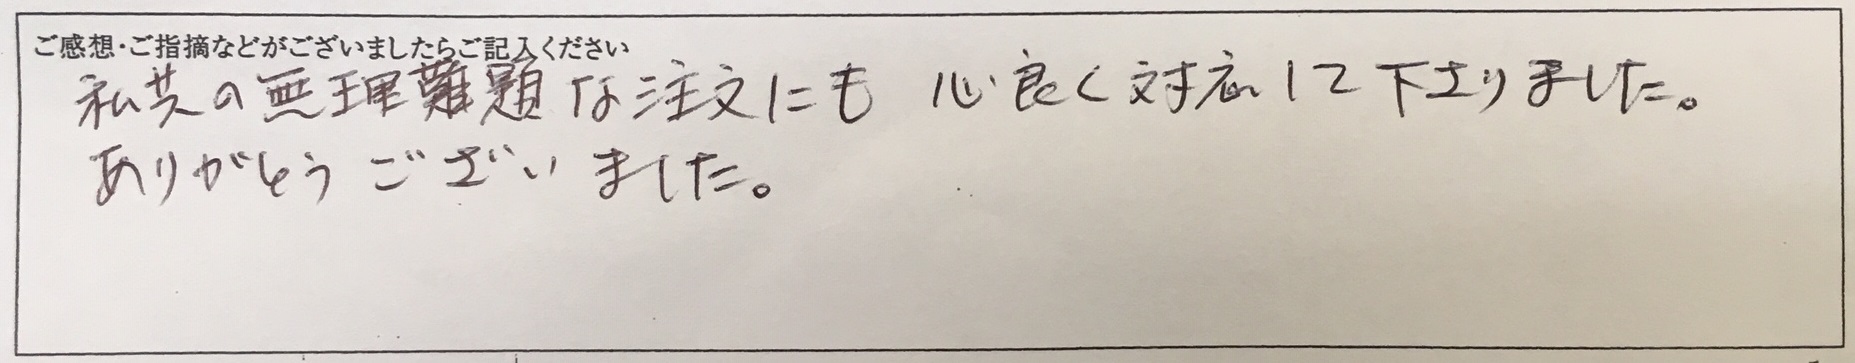 ご感想・ご指摘などがございましたらご記入ください
私共の無理難題な注文にも 心良く対応して下さりました。
ありがとうございました。